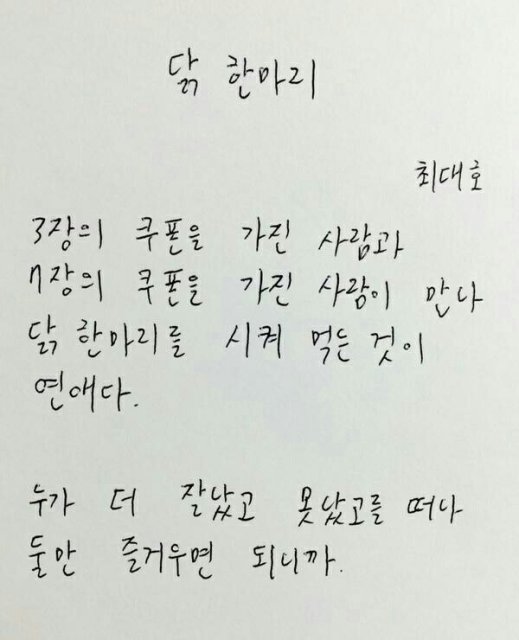 닭 한마리
최대호
3장의 쿠폰을 가진 사람과
7장의 쿠폰을 가진 사람이 만나
닭 한마리를 시켜 먹는 것이
연애다.
누가 더 잘났고 못났고를 떠나
둘만 즐거우면 되니까.